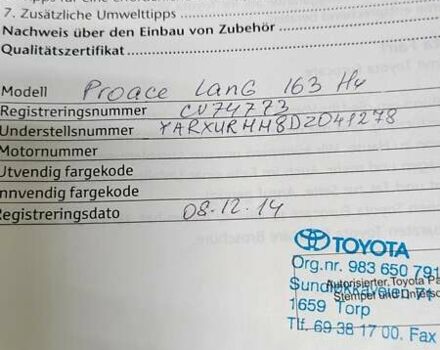 7. Zusätzliche Umwelttipps
Nachweis über den Einbau von Zubehör
Qualitätszertifikat
Modell Proace Lang 163 Hk
Registreringsnummer CV74773
Understellsnummer YARXURHH8DZ041278
Motornummer
Utvendig fargekode
Innvendig fargekode
Registreringsdato 08.12.14
TOYOTA
Org.nr. 983 650 791
Autorisierter Toyota Pa
Sundløkkaveien 71
Stempel und Untersc
1659 Torp
Tlf. 69 38 17 00. Fax